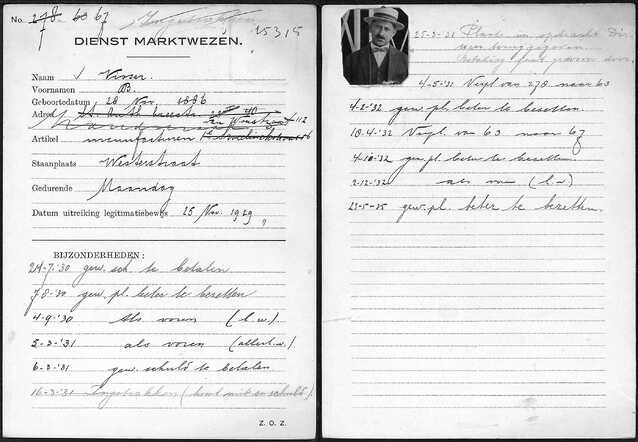 No. 278 63 67 Ingetrokken 15315
DIENST MARKTWEZEN.
Naam Visser
Voornamen B.
Geboortedatum 28 Nov. 1886
Adres 112
Artikel manufacturen
Staanplaats Westerstraat
Gedurende Maandag
Datum uitreiking legitimatiebewijs 25 Nov. 1929
BIJZONDERHEDEN:
24-7-'30 gew. sch. te betalen
7-8-'30 gew. pl. beter te bezetten
4-9-'30 als voren (l.w.)
5-3-'31 als voren (allerl.w.)
6-3-'31 gew. schuld te betalen
16-3-'31 Ingetrokken (komt niet en schuld).
Z. O. Z.
25-3-31 Plaats in opdracht Dir.
weer teruggegeven
betaling
4-5-'31 Verpl. van 278 naar 63
4-2-'32 gew. pl. beter te bezetten.
18-4-'32 Verpl. van 63 naar 67
4-10-'32 gew. pl. beter te bezetten.
2-12-'32 als voren (l.w.)
gew. pl. beter te bezetten.